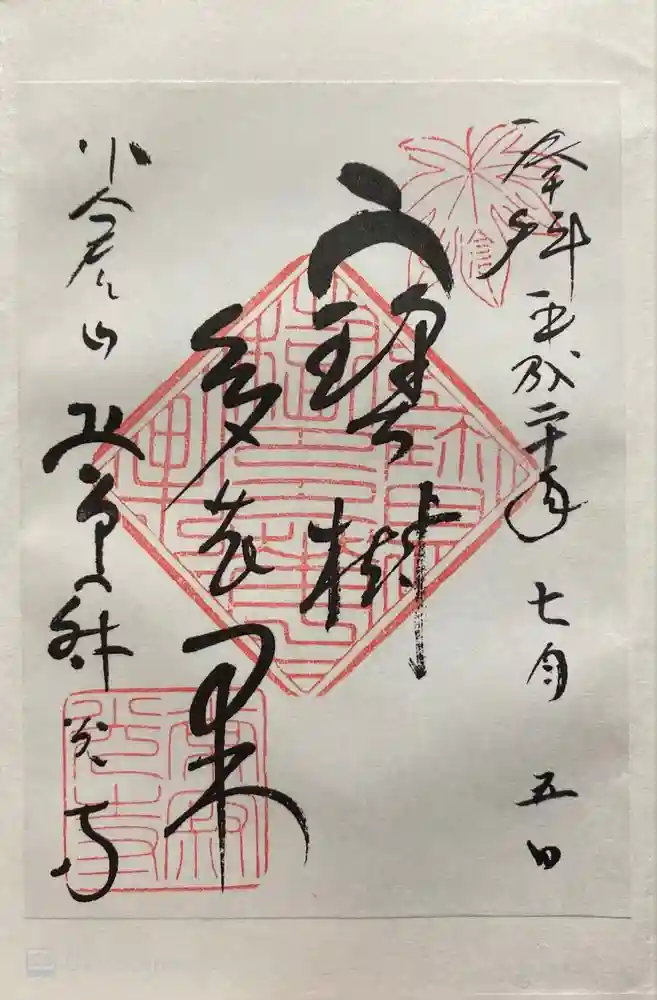 奉拝 平成二十年 七月 五日
寶樹
多花果
小倉山 常寂光寺